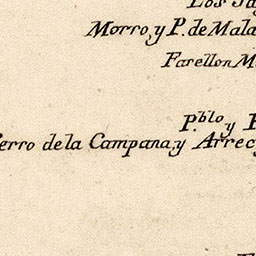 Los
Morro, y P. de Mala
Farellon M
P.blo y
Cerro de la Campana, y Arrec